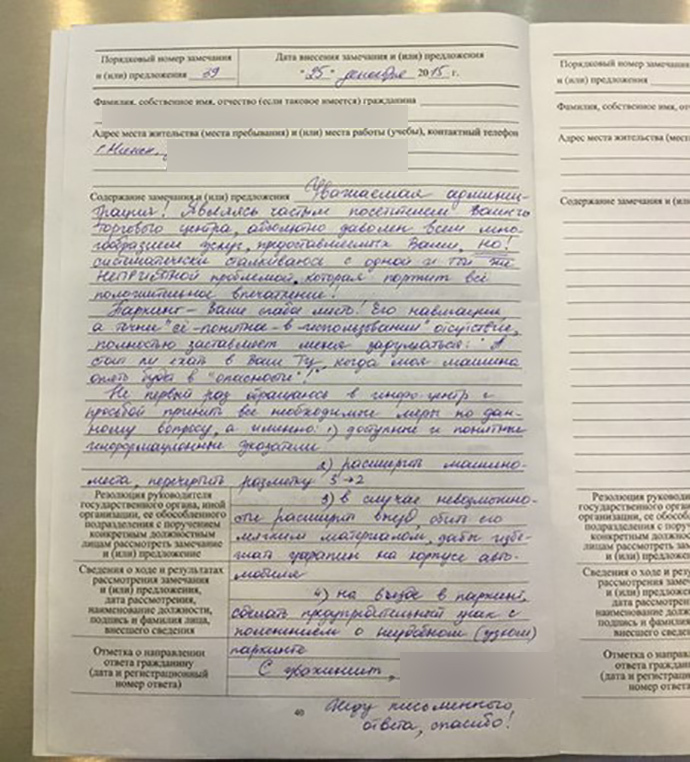 Порядковый номер замечания
и (или) предложения 39
Дата внесения замечания и (или) предложения
"25" декабря 2015 г.
Фамилия, собственное имя, отчество (если таковое имеется) гражданина
Адрес места жительства (места пребывания) и (или) места работы (учебы), контактный телефон
г. Минск,
Содержание замечания и (или) предложения Уважаемая админис-
трация! Являясь частым посетителем Вашего
торгового центра, абсолютно доволен всем мно-
гообразием услуг, предоставляемых Вами, но!
систематически сталкиваюсь с одной и той же
НЕПРИЯТНОЙ проблемой, которая портит всё
положительное впечатление!
Паркинг – Ваше слабое место! Его навигация,
а точнее "её-понятное-в-использовании" отсутствие,
полностью заставляет меня задуматься: "А
стоит ли ехать в Ваш ТЦ, когда моя машина
опять будет в "опасности"!"
Не первый раз обращаюсь в инфо-центр с
просьбой принять все необходимые меры по дан-
ному вопросу, а именно: 1) доступные и понятные
информационные указатели
2) расширить машино-
места, перечертить разметку 3→2
3) в случае невозможно-
сти расширить въезд, обить его
мягким материалом, дабы избе-
жать царапин на корпусе авто-
мобиля
4) на въезде в паркинг,
сделать предупредительный знак с
пояснением о неудобном (узком)
паркинге
С уважением,
Жду письменного
ответа, спасибо!
Резолюция руководителя
государственного органа, иной
организации, ее обособленного
подразделения с поручением
конкретным должностным
лицам рассмотреть замечание
и (или) предложение
Сведения о ходе и результатах
рассмотрения замечания
и (или) предложения,
дата рассмотрения,
наименование должности,
подпись и фамилия лица,
внесшего сведения
Отметка о направлении
ответа гражданину
(дата и регистрационный
номер ответа)
40
Порядковый номер замечания
и (или) предложения
Фамилия, собственное имя,
Адрес места жительства
Содержание замечания и (или)